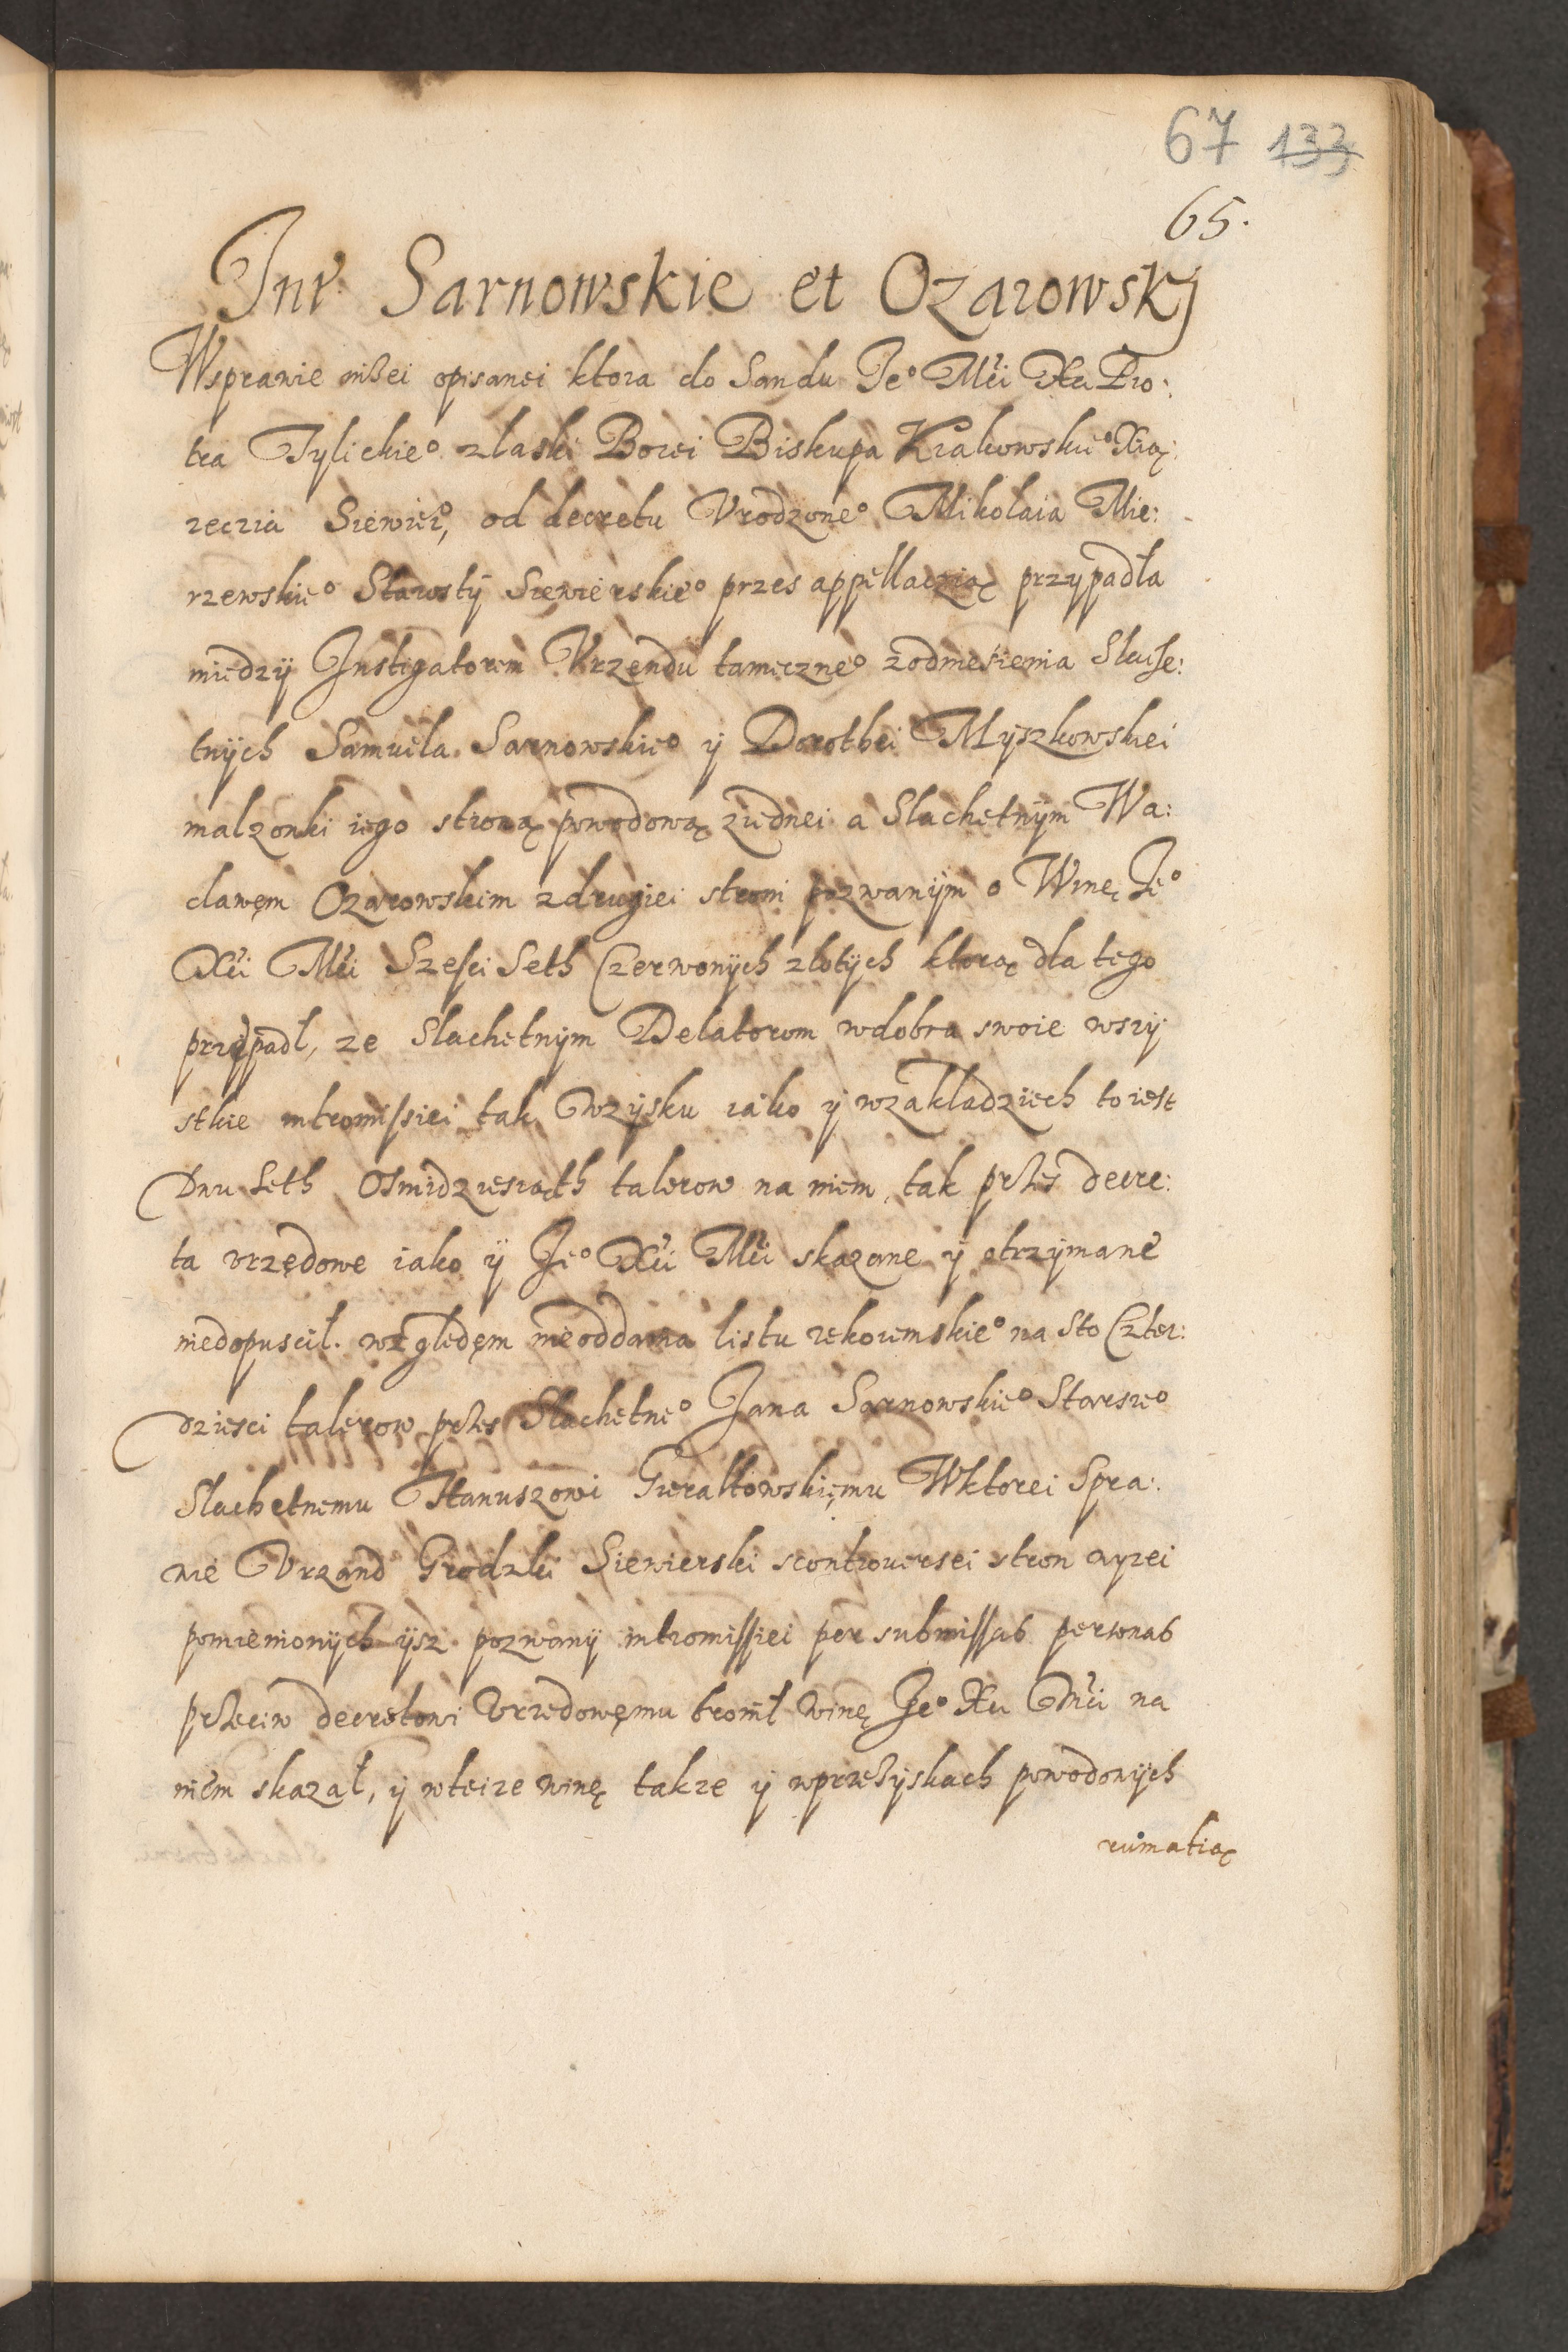 67 133
65.
Intr Sarnowskie et Ozarowskj
Wsprawie niżei opisanei ktora do Sandu Je° Mci Xa Pio:
tra Tylickie° złaski Bozei Biskupa Krakowskie° Xią:
zeczia Siewier°, od decretu Vrodzone° Mikolaia Mie:
rzewskie° Starosty Siewierskie° przes appellaczią przypadła
miedzÿ Instigatorem Vrzendu tameczne° zodniesienia Slache:
tnÿch Samuela Sarnowskie° ÿ Dorothei Myszkowskiei
malzonki iego stroną powodową ziednei a Slachetnÿm Wa:
clawęm Ozarowskim zdrugiei stroni pozwanÿm o Winę Je°
Xci Mci Szesci Seth Czerwonÿch zlotÿch ktorą dla tego
przÿpadł, ze Slachetnÿm Delatorom wdobra swoie wszÿ
stkie intromissiei tak wzÿsku iako ÿ wzakladziech to iest
Dwu Seth Osmidziesiąth talerow na niem, tak przes decre:
ta vrzędowe iako ÿ Je° Xci Mci skazane ÿ otrzÿmane
niedopuscił. względęm nieoddania listu rekoiemskie° na Sto Czter:
dziesci talerow przes Slachetne° Jana Sarnowskie° Starsze°
Slachetnemu Hanuszowi Gieraltowskięmu Wktorei Spra:
wie Vrzand Grodzki Siewierski scontrouersei stron wyzei
pomienionÿch ÿsz pozwanÿ intromissiei per submissas personas
przeciw decretowi Vrzedowęmu bronił winę Je° Xci Mci na
niem skazał, ÿ wteize winę takze ÿ wprzezÿskach powodowÿch
rumatią